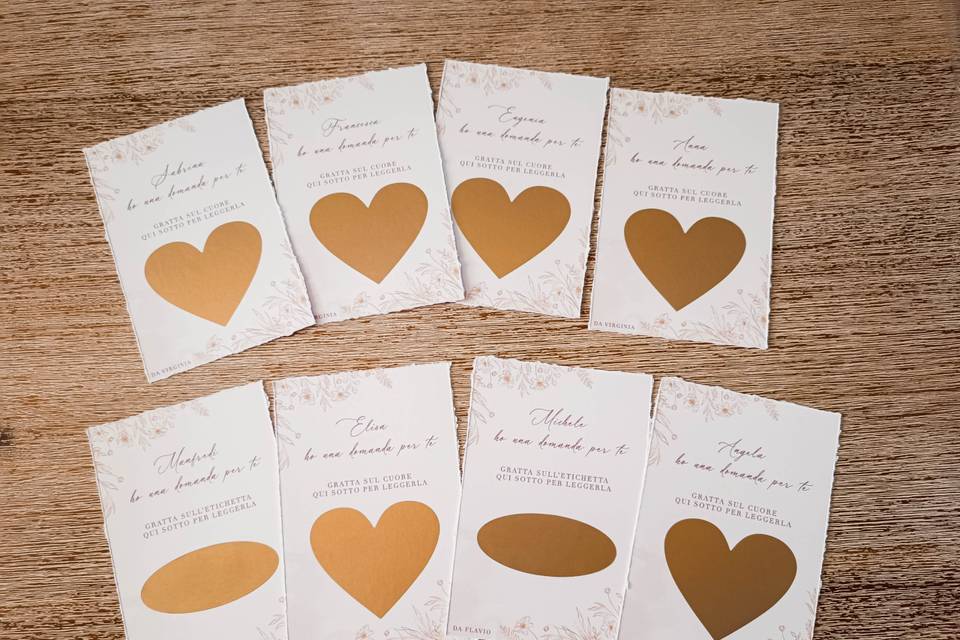 Sabrina
ho una domanda per te
GRATTA SUL CUORE
QUI SOTTO PER LEGGERLA
DA VIRGINIA
Francesca
ho una domanda per te
GRATTA SUL CUORE
QUI SOTTO PER LEGGERLA
VIRGINIA
Eugenia
ho una domanda per te
GRATTA SUL CUORE
QUI SOTTO PER LEGGERLA
Anna
ho una domanda per te
GRATTA SUL CUORE
QUI SOTTO PER LEGGERLA
DA VIRGINIA
Manfredi
ho una domanda per te
GRATTA SULL'ETICHETTA
QUI SOTTO PER LEGGERLA
Elisa
ho una domanda per te
GRATTA SUL CUORE
QUI SOTTO PER LEGGERLA
Michele
ho una domanda per te
GRATTA SULL'ETICHETTA
QUI SOTTO PER LEGGERLA
DA FLAVIO
Angela
ho una domanda per te
GRATTA SUL CUORE
QUI SOTTO PER LEGGERLA